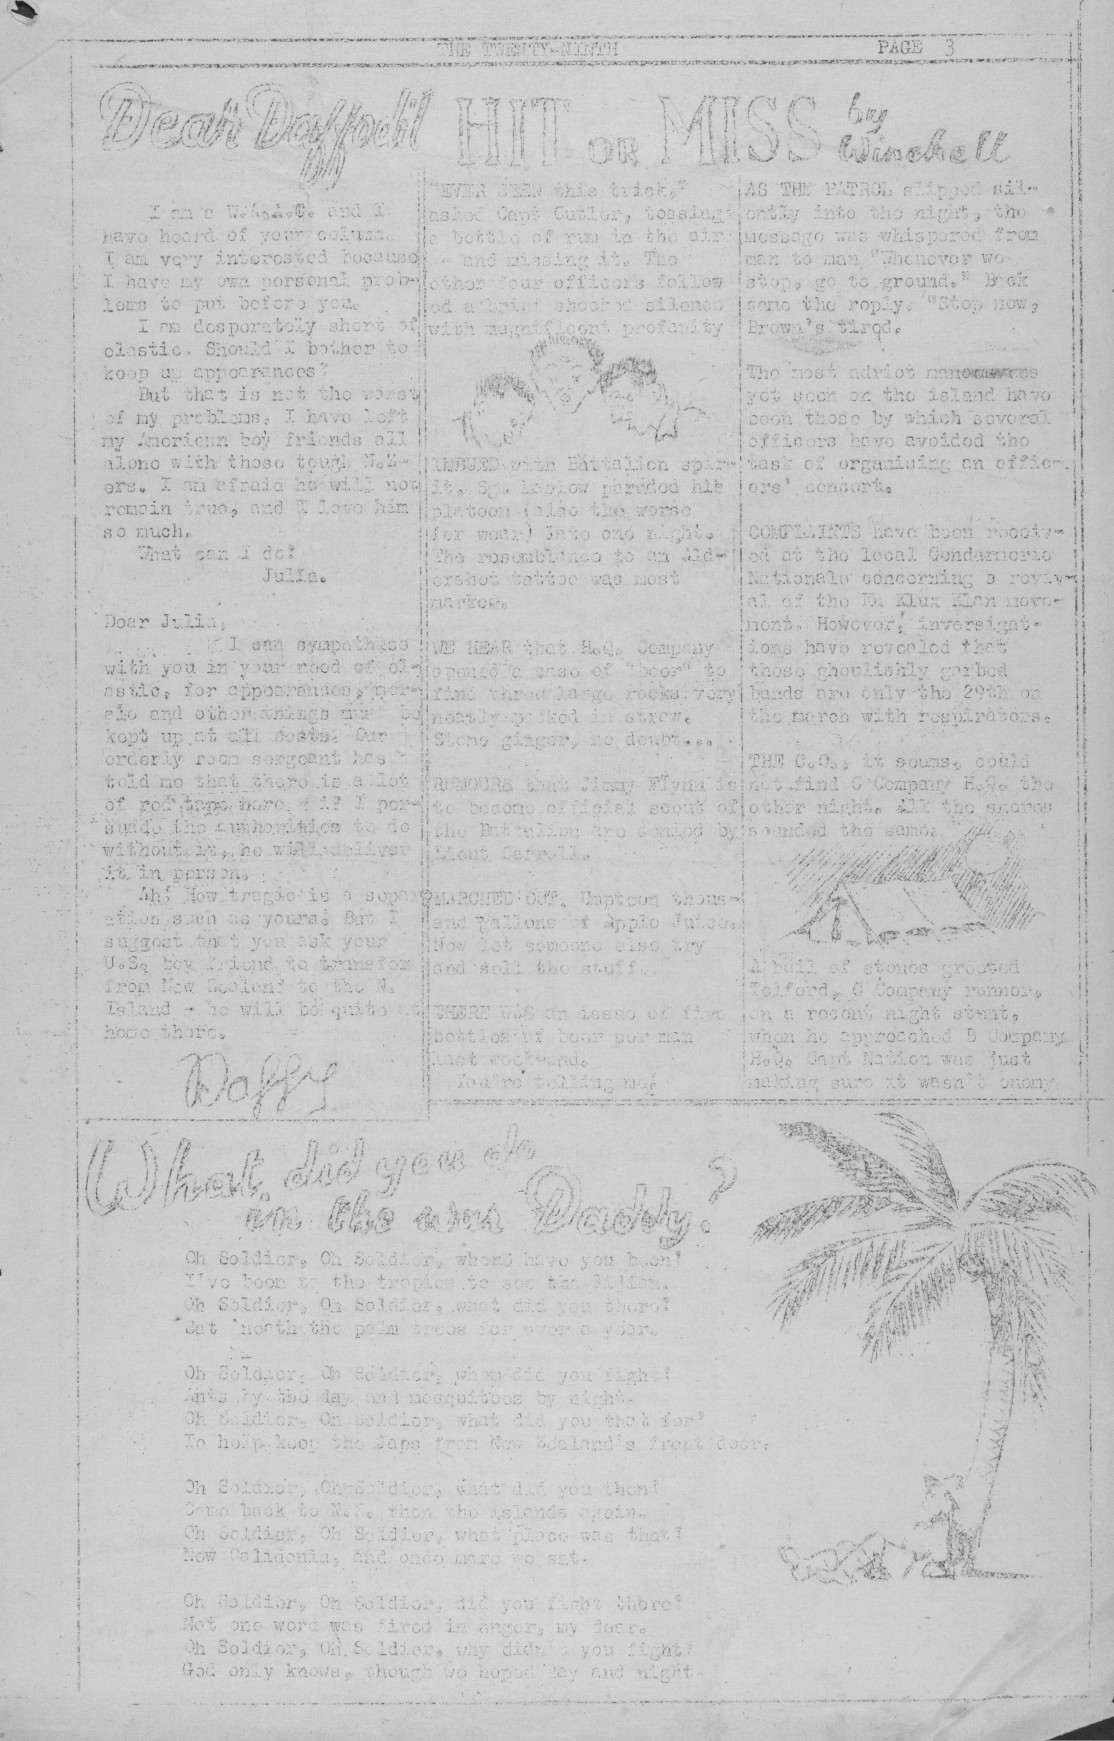 THE TWENTY-NINTH PAGE 3
Dear Daffodil
I am a W.A.A.C. and I
have heard of your column.
I am very interested because
I have my own personal prob-
lems to put before you.
I am desperately short of
elastic. Should I bother to
keep up appearances?
But that is not the worst
of my problems, I have left
my American boy friends all
alone with those tough N.Z-
ers. I am afraid he will not
remain true, and I love him
so much.
What can I do?
Julia.
Dear Julia,
I can sympathise
with you in your need of el-
astic, for appearances, mor-
ale and other things must be
kept up at all costs. Our
orderly room sergeant has
told me that there is a lot
of red tape here, if I per-
suade the authorities to do
without it, he will deliver
it in person.
Ah! How tragic is a separ-
ation such as yours! But I
suggest that you ask your
U.S. boy friend to transfer
from New Zealand to the N.
Island - he will be quite at
home there.
Daffy
HIT OR MISS by
Winchell
"EVER SEEN this trick,"
asked Capt Cutler, tossing
a bottle of rum in the air
- and missing it. The
other four officers follow
ed a brief shocked silence
with magnificent profanity
IMBUED with Battalion spir-
it, Sgt paraded his
platoon (also the worse
for wear) late one night.
The resemblance to an Ald-
ershot tattoo was most
marked.
WE HEAR that H.Q. Company
opened a case of "beer" to
find three large rocks very
neatly packed in straw.
Stone ginger, no doubt...
RUMOURS that Jimmy Flynn is
to become official scout of
the Battalion are denied by
Lieut Carroll.
MARCHED OUT. Umpteen thous-
and gallons of Apple Juice.
Now let someone else try
and sell the stuff.
THERE WAS an issue of five
bottles of beer per man
last week-end.
You're telling me!
AS THE PATROL slipped sil-
ently into the night, the
message was whispered from
man to man "Whenever we
stop, go to ground." Back
came the reply: "Stop now,
Brown's tired.
The most adriot manoeuvres
yet seen on the island have
been those by which several
officers have avoided the
task of organising an offic-
ers' concert.
COMPLAINTS have been receiv-
ed at the local Gendarmerie
Nationale concerning a reviv-
al of the Ku Klux Klan move-
ment. However, inversigat-
ions have revealed that
these ghoulishly garbed
bands are only the 29th on
the march with respirators.
THE C.O., it seems, could
not find C Company H.Q. the
other night. All the snores
sounded the same.
A hail of stones greeted
Telford, C Company runner,
on a recent night stunt,
when he approached B Company
H.Q. Capt Nation was just
making sure it wasn't enemy
What did you do
in the war Daddy?
Oh Soldier, Oh Soldier, where have you been?
I've been to the tropics to see the Fijian.
Oh Soldier, Oh Soldier, what did you there?
Sat 'neath the palm trees for over a year.
Oh Soldier, Oh Soldier, whom did you fight?
Ants by the day and mosquitoes by night.
Oh Soldier, Oh Soldier, what did you that for?
To help keep the Japs from New Zealand's front door.
Oh Soldier, Oh Soldier, what did you then?
Came back to N.Z. then the islands again.
Oh Soldier, Oh Soldier, what place was that?
New Calidonia, and once more we sat.
Oh Soldier, Oh Soldier, did you fight there?
Not one word was fired in anger, my dear.
Oh Soldier, Oh Soldier, why didn't you fight?
God only knows, though we hoped day and night